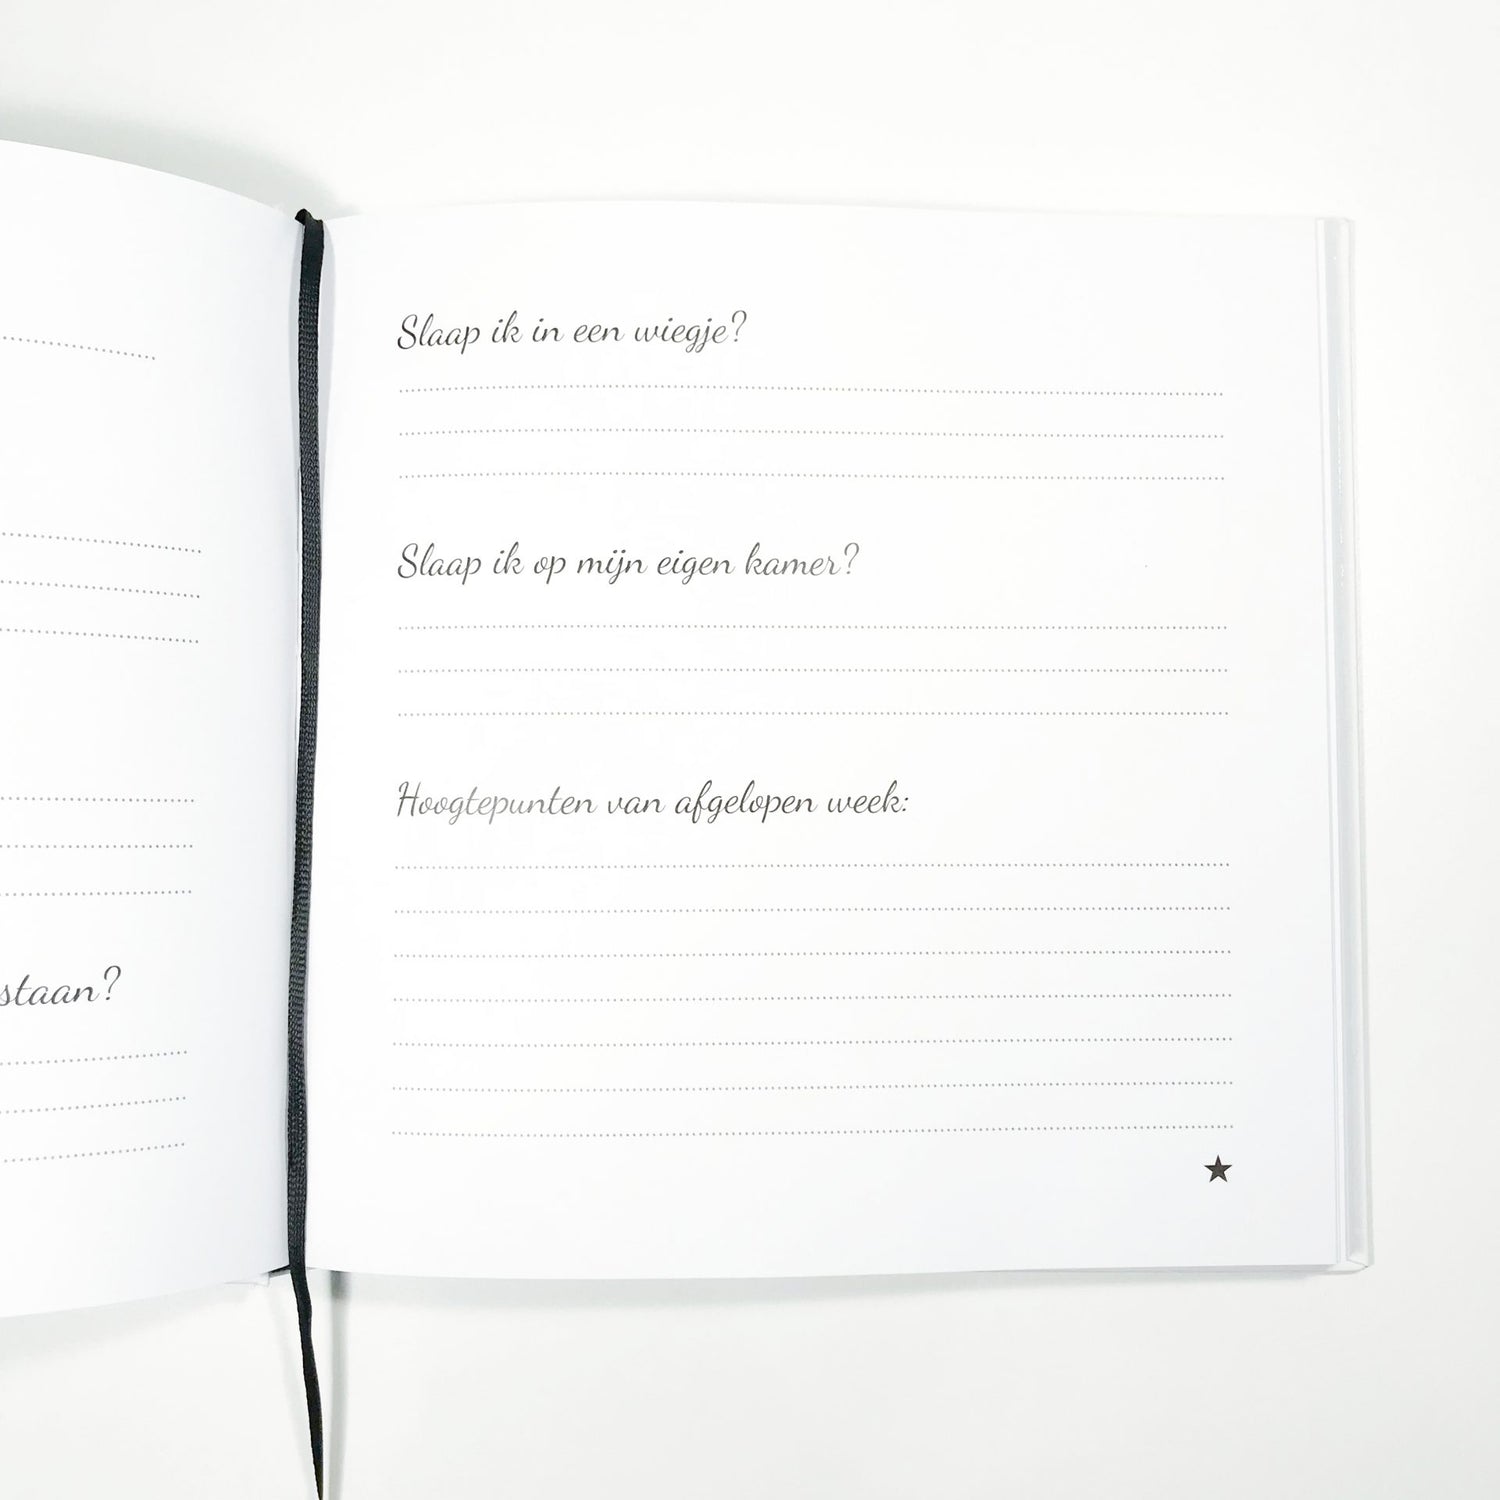 staan?
Slaap ik in een wiegje?
Slaap ik op mijn eigen kamer?
Hoogtepunten van afgelopen week: